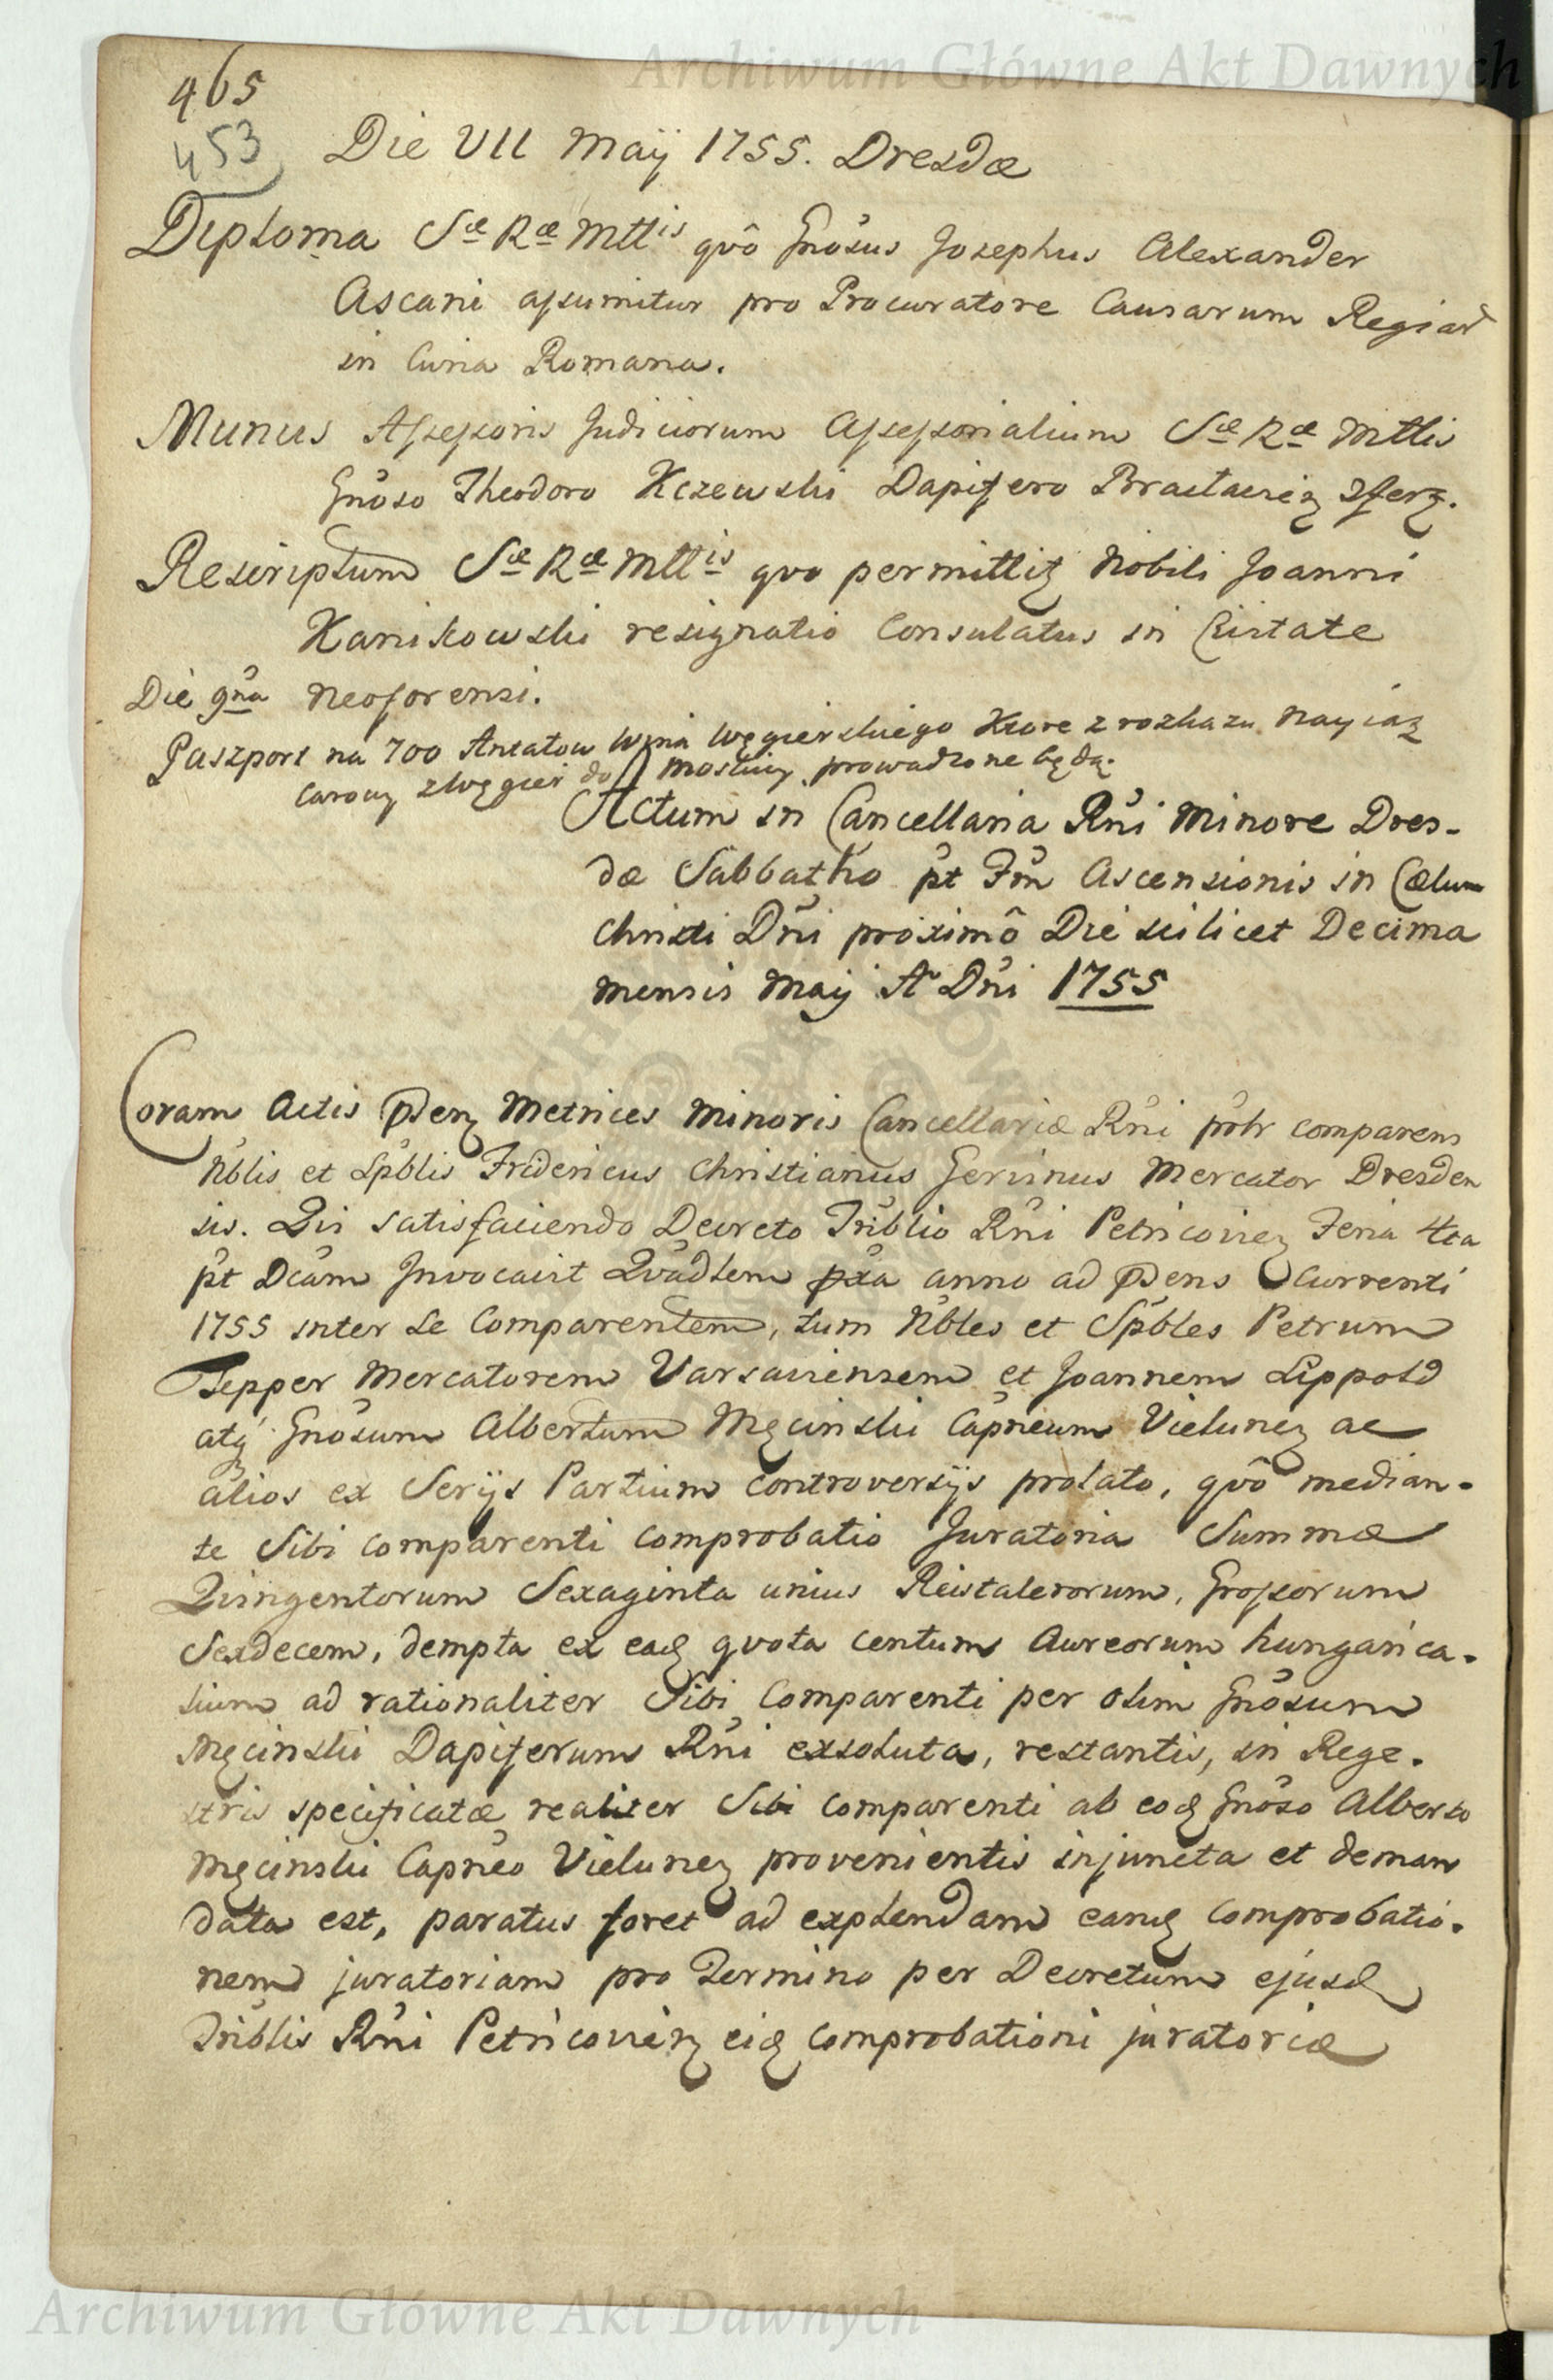 Archiwum Główne Akt Dawnych
465
453
Die VII Maÿ 1755. Dresdæ
Diploma Sæ Ræ Mttis quô Gnosus Josephus Alexander
Ascani assumitur pro Procuratore Causarum Regiar
in Curia Romana.
Munus Assessoris Judiciorum Assessorialium Sæ Ræ Mttis
Gnoso Theodoro Kczewski Dapifero
Rescriptum Sæ Ræ Mttis quo permittitz Nobili Joanni
Kanikowski resignatio Consulatus in Civitate
Neoforensi.
Die 9na
Paszport na 700 Antałow Wina Węgierskiego Ktore z rozkazu Nayiaz
Carowy z Węgier do Moskwy prowadzone będą.
Actum in Cancellaria Rni Minore Dres-
dæ Sabbatho pt Fm Ascensionis in Cælum
Christi Dni proximô Die scilicet Decima
mensis Maÿ Ao Dni 1755
Coram Actis pdenz Metrices Minoris Cancellariæ Rni pnlr comparens
Nblis et Spblis Fridericus Christianus Gerinus Mercator Dresden
sis. Qui satisfaciendo Decreto Triblio Rni Petricovienz Feria 4ta
pt Dcam Invocavit Quadlem pxa anno ad pdens currenti
1755 inter se Comparentem, tum Nbles et Spbles Petrum
Tepper Mercatorem Varsaviensem et Joannem Lippold
atq Gnosum Albertum Męcinski Capneum Vielunenz ac
alios ex Serÿs Partium controversÿs prolato, quô median-
te Sibi comparenti comprobatio Juratoria Summæ
Quingentorum Sexaginta unius Reistalerorum, Grossorum
Sexdecem, dempta ex eadz quota centum Aureorum hungarica-
lium ad rationaliter Sibi Comparenti per olim Gnosum
Męcinski Dapiferum Rni exsoluta, restantis, in Rege-
stris specificatæ realiter Sibi comparenti ab eodz Gnoso Alberto
Męcinski Capneo Vielunenz provenientis injuncta et deman
data est, paratus foret ad explendam eandz comprobatio-
nem juratoriam pro Termino per Decretum ejusd
Triblis Rni Petricovienz eidz comprobationi juratoriæ
Archiwum Główne Akt Dawnych